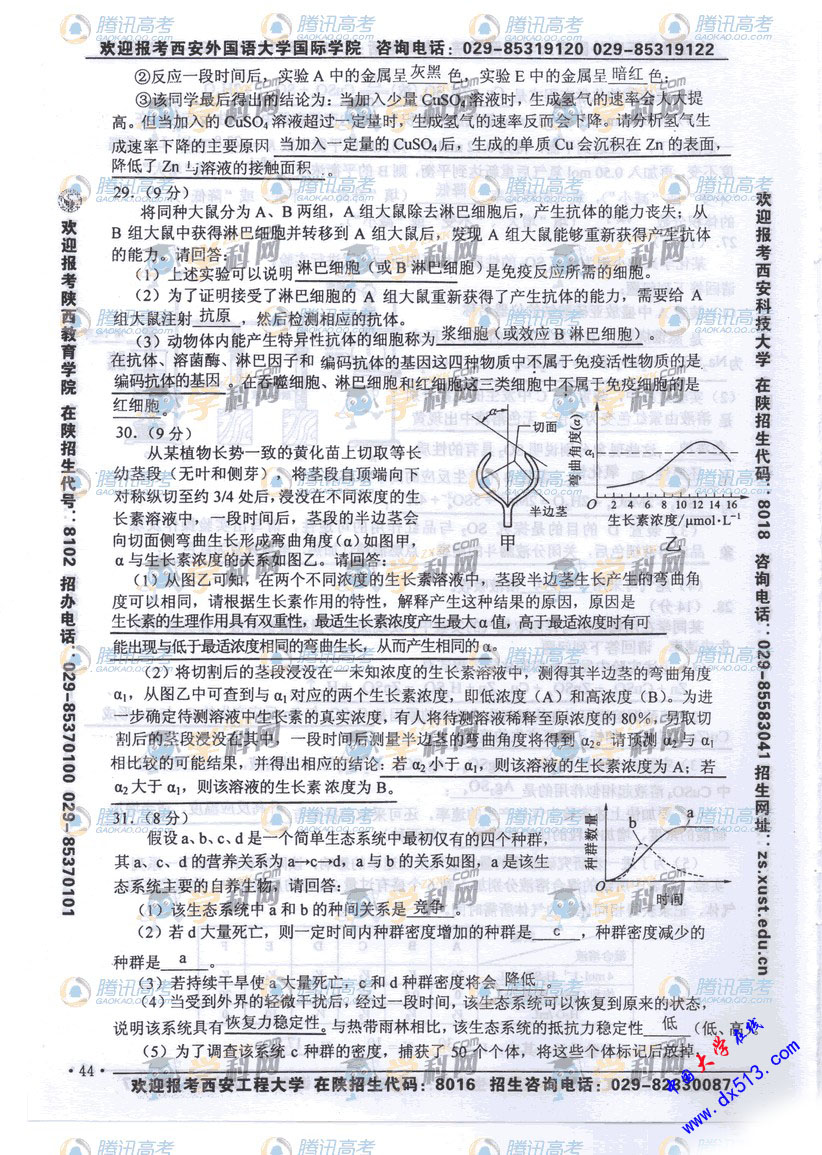 欢迎报考西安外国语大学国际学院 咨询电话：029-85319120 029-85319122
②反应一段时间后，实验 A 中的金属呈灰黑色，实验 E 中的金属呈暗红色；
③该同学最后得出的结论为：当加入少量 CuSO₄ 溶液时，生成氢气的速率会大大提
高。但当加入的 CuSO₄ 溶液超过一定量时，生成氢气的速率反而会下降。请分析氢气生
成速率下降的主要原因 当加入一定量的 CuSO₄ 后，生成的单质 Cu 会沉积在 Zn 的表面，
降低了 Zn 与溶液的接触面积 。
29.（9 分）
将同种大鼠分为 A、B 两组，A 组大鼠除去淋巴细胞后，产生抗体的能力丧失；从
B 组大鼠中获得淋巴细胞并转移到 A 组大鼠后，发现 A 组大鼠能够重新获得产生抗体
的能力。请回答：
（1）上述实验可以说明 淋巴细胞（或 B 淋巴细胞）是免疫反应所需的细胞。
（2）为了证明接受了淋巴细胞的 A 组大鼠重新获得了产生抗体的能力，需要给 A
组大鼠注射 抗原 ，然后检测相应的抗体。
（3）动物体内能产生特异性抗体的细胞称为 浆细胞（或效应 B 淋巴细胞）。
在抗体、溶菌酶、淋巴因子和 编码抗体的基因这四种物质中不属于免疫活性物质的是
编码抗体的基因 。在吞噬细胞、淋巴细胞和红细胞这三类细胞中不属于免疫细胞的是
红细胞 。
30.（9 分）
从某植物长势一致的黄化苗上切取等长
幼茎段（无叶和侧芽），将茎段自顶端向下
对称纵切至约 3/4 处后，浸没在不同浓度的生
长素溶液中，一段时间后，茎段的半边茎会
向切面侧弯曲生长形成弯曲角度（α）如图甲，
α 与生长素浓度的关系如图乙。请回答：
α
切面
半边茎
甲
弯曲角度(α)
α₁
O 2 4 6 8 10 12 14 16
生长素浓度/μmol·L⁻¹
乙
（1）从图乙可知，在两个不同浓度的生长素溶液中，茎段半边茎生长产生的弯曲角
度可以相同，请根据生长素作用的特性，解释产生这种结果的原因，原因是
生长素的生理作用具有双重性，最适生长素浓度产生最大 α 值，高于最适浓度时有可
能出现与低于最适浓度相同的弯曲生长，从而产生相同的 α。
（2）将切割后的茎段浸没在一未知浓度的生长素溶液中，测得其半边茎的弯曲角度
α₁，从图乙中可查到与 α₁ 对应的两个生长素浓度，即低浓度（A）和高浓度（B）。为进
一步确定待测溶液中生长素的真实浓度，有人将待测溶液稀释至原浓度的 80%，另取切
割后的茎段浸没在其中，一段时间后测量半边茎的弯曲角度将得到 α₂。请预测 α₂ 与 α₁
相比较的可能结果，并得出相应的结论：若 α₂ 小于 α₁，则该溶液的生长素浓度为 A；若
α₂ 大于 α₁，则该溶液的生长素浓度为 B。
31.（8 分）
假设 a、b、c、d 是一个简单生态系统中最初仅有的四个种群，
其 a、c、d 的营养关系为 a→c→d，a 与 b 的关系如图，a 是该生
态系统主要的自养生物，请回答：
种群数量
b
a
O
时间
（1）该生态系统中 a 和 b 的种间关系是 竞争 。
（2）若 d 大量死亡，则一定时间内种群密度增加的种群是 c ，种群密度减少的
种群是 a 。
（3）若持续干旱使 a 大量死亡，c 和 d 种群密度将会 降低 。
（4）当受到外界的轻微干扰后，经过一段时间，该生态系统可以恢复到原来的状态，
说明该系统具有恢复力稳定性。与热带雨林相比，该生态系统的抵抗力稳定性 低 （低、高
（5）为了调查该系统 c 种群的密度，捕获了 50 个个体，将这些个体标记后放掉，
·44·
欢迎报考西安工程大学 在陕招生代码：8016 招生咨询电话：029-82330087
欢迎报考陕西教育学院 在陕招生代号：8102 招办电话：029-85370100 029-85370101
欢迎报考西安科技大学 在陕招生代码：8018 咨询电话：029-85583041 招生网址：zs.xust.edu.cn
中国大学在线
www.dx513.com
腾讯高考
GAOKAO.QQ.COM
学科网